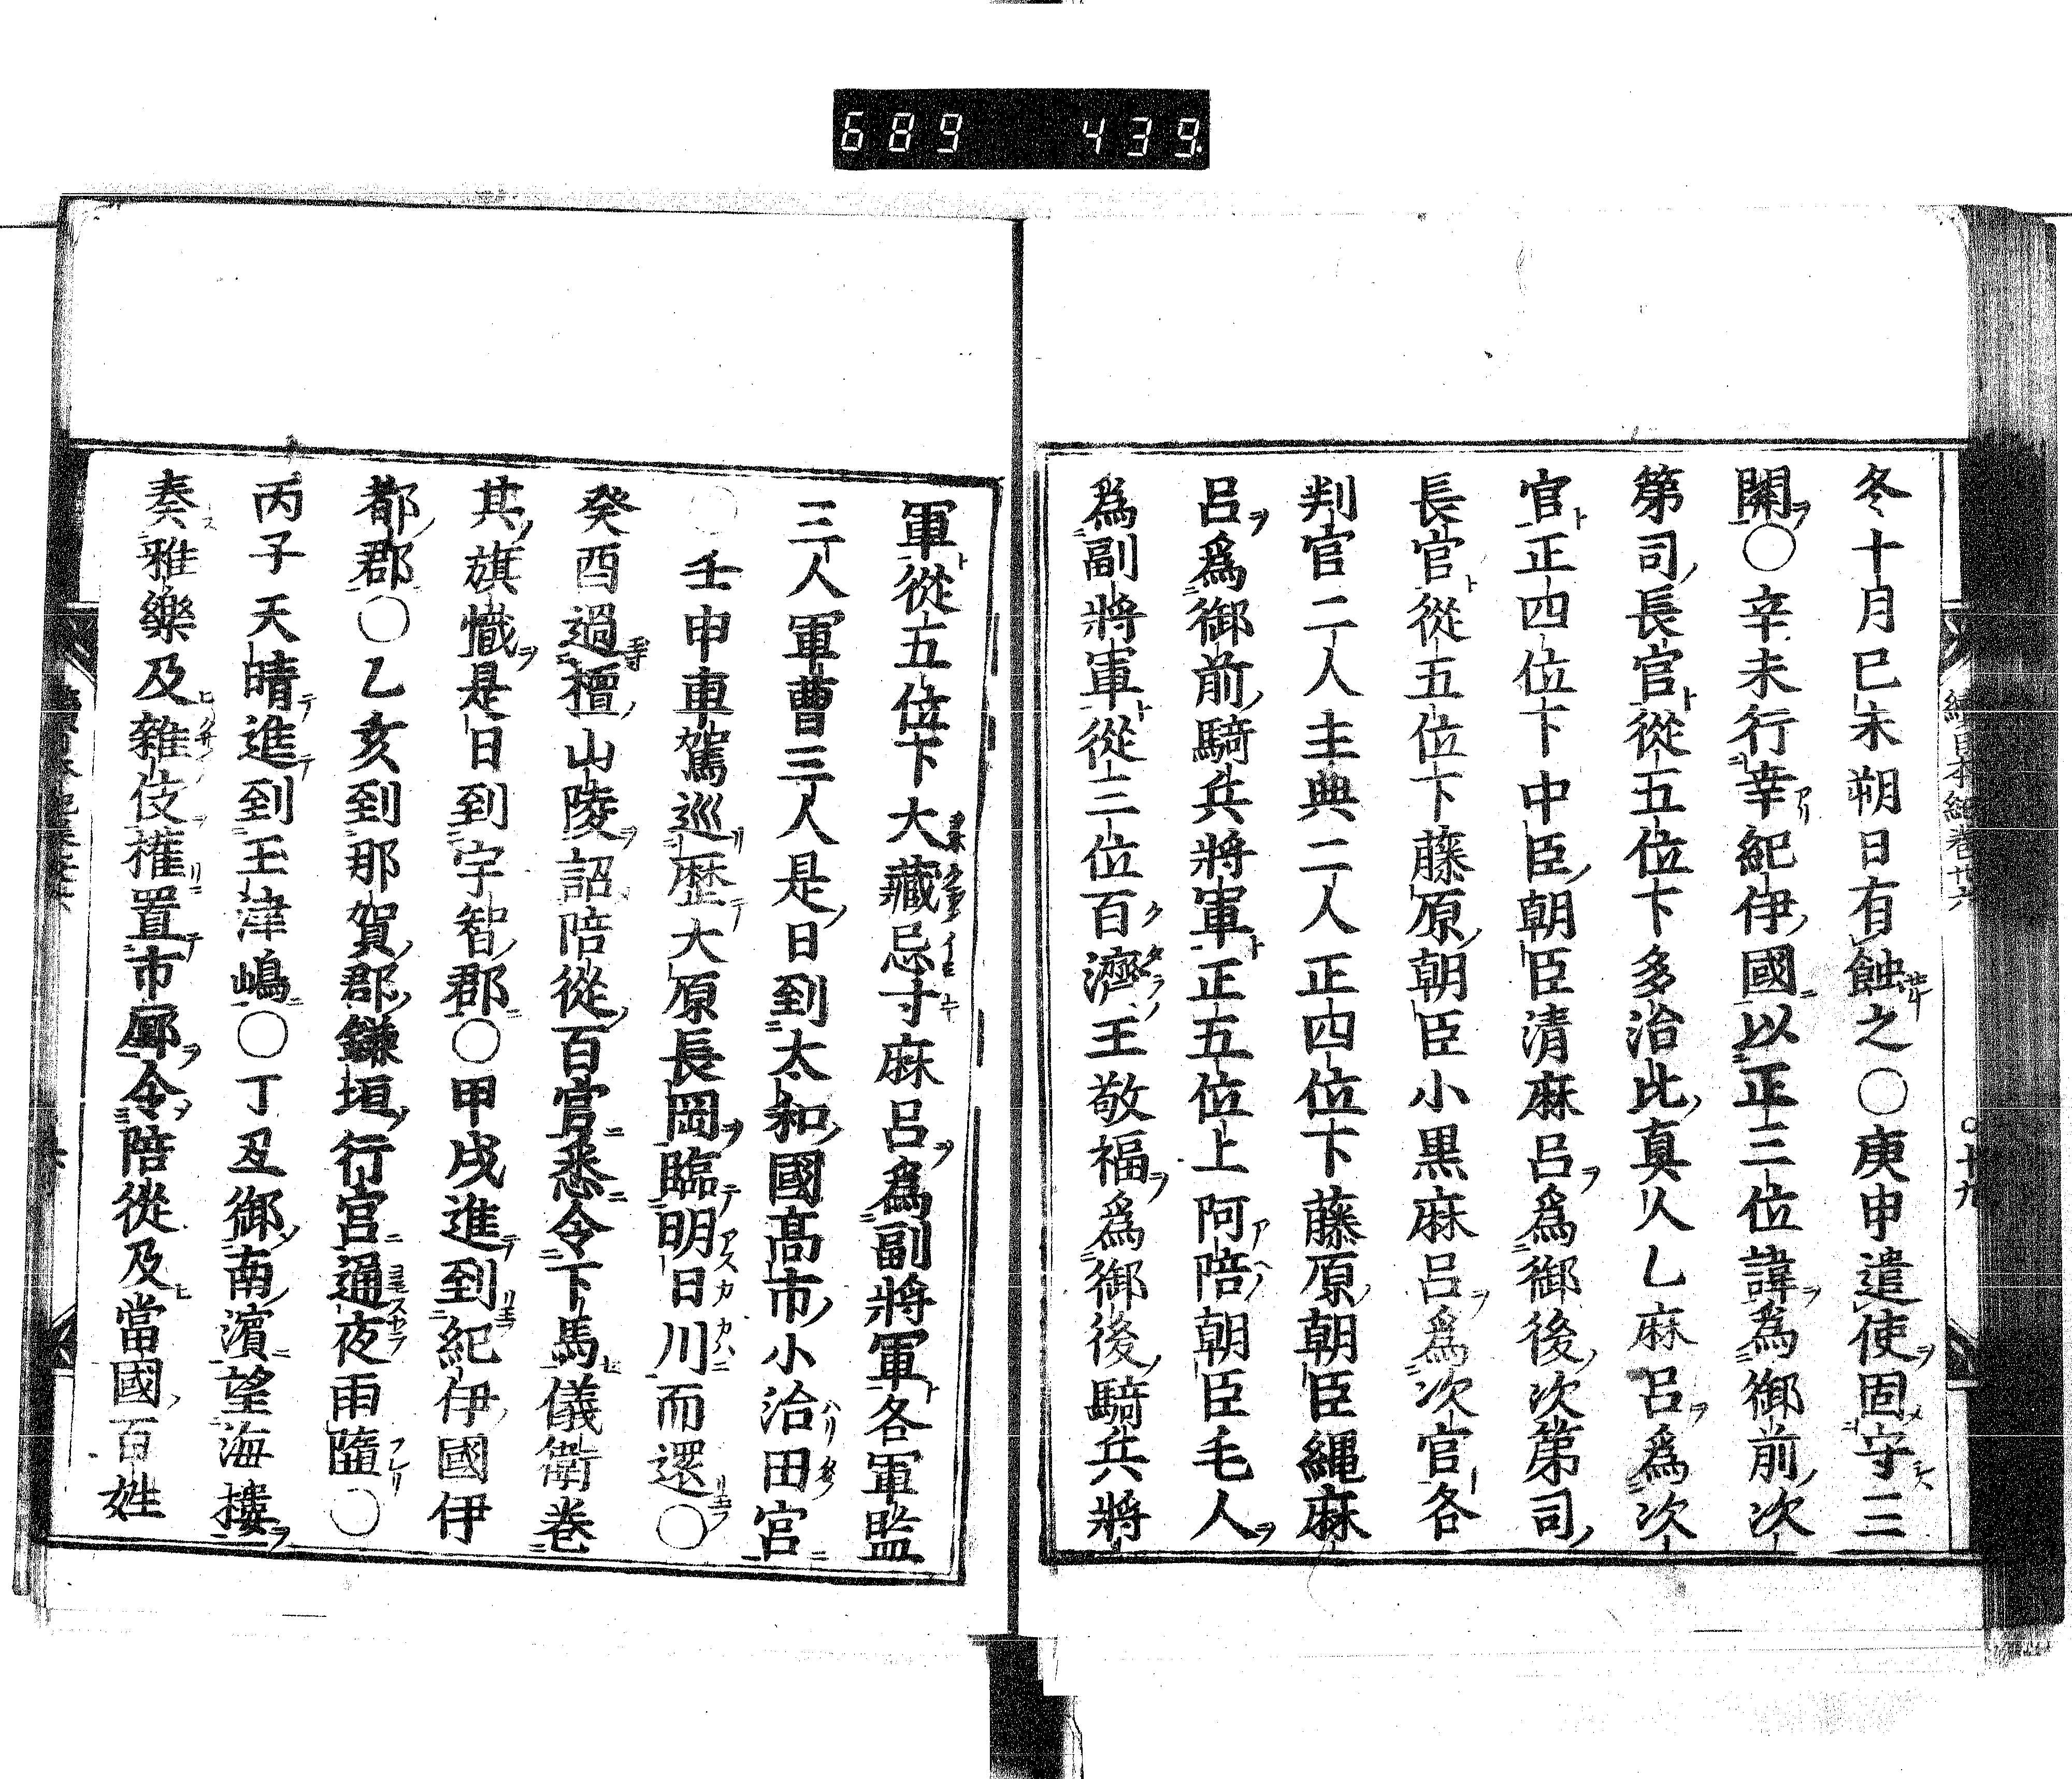 689 439
冬十月已未朔日有蝕之○庚申遣使固守三
關○辛未行幸紀伊國以正三位諱為御前次
第司長官從五位下多治比真人乙麻呂爲次
官正四位下中臣朝臣清麻呂爲御後次第司
長官從五位下藤原朝臣小黒麻呂爲次官各
判官二人主典二人正四位下藤原朝臣繩麻
呂爲御前騎兵將軍正五位上阿陪朝臣毛人
爲副將軍從三位百濟王敬福爲御後騎兵將
軍從五位下大藏忌寸麻呂爲副將軍各軍監
三人軍曹三人是日到大和國髙市小治田宮
○壬申車駕巡歴大原長岡臨明日川而還○
癸酉過檀山陵詔陪從百官悉令下馬儀衛巻
其旗幟是日到宇智郡○甲戌進到紀伊國伊
都郡○乙亥到那賀郡鎌垣行宮通夜雨墮○
丙子天晴進到玉津嶋○丁丑御南濱望海樓
奏雅樂及雜伎權置市廛令陪從及當國百姓
續日本紀卷廿六
○十九